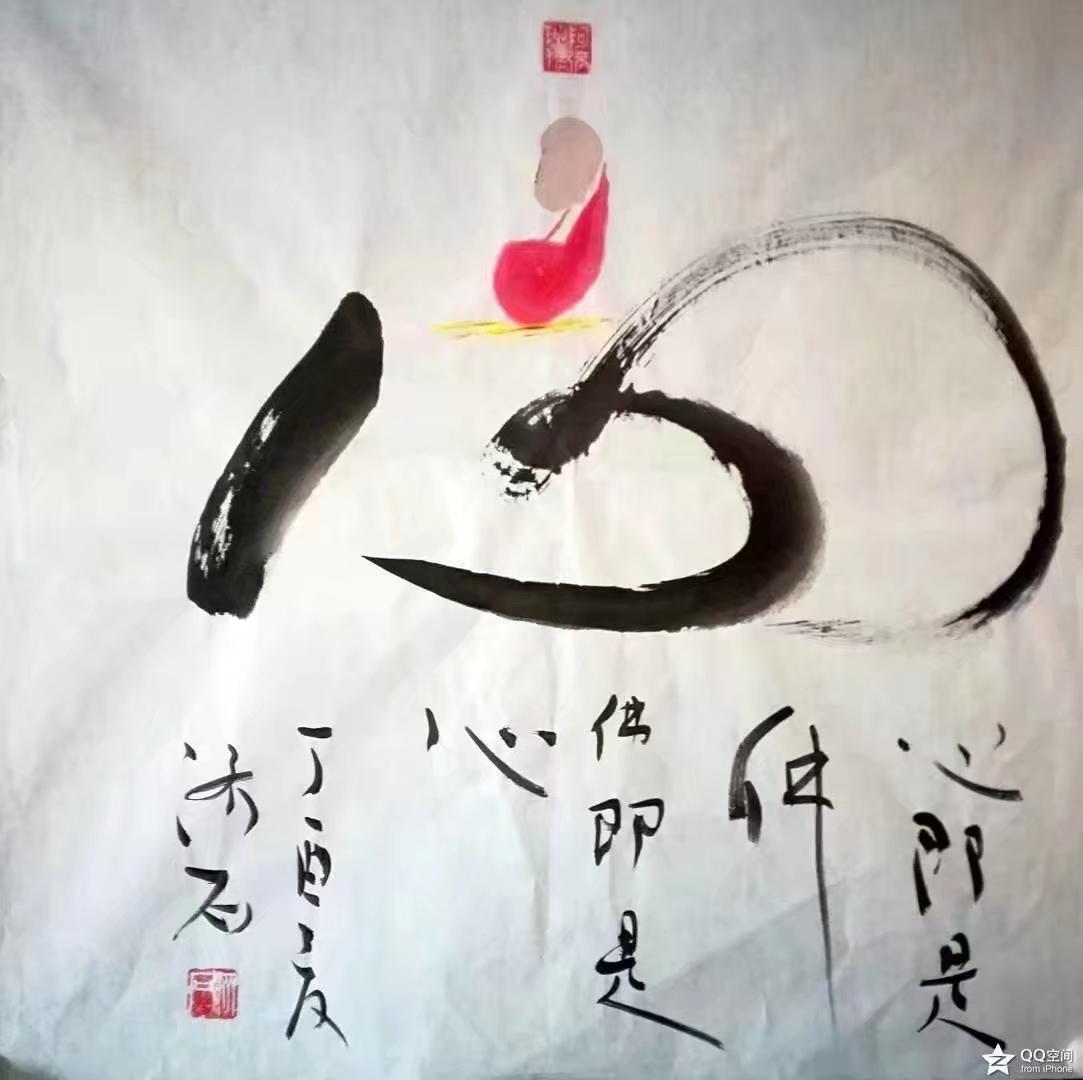 心
心即是
佛
佛即是
心
丁酉夏
QQ空间
from iPhone